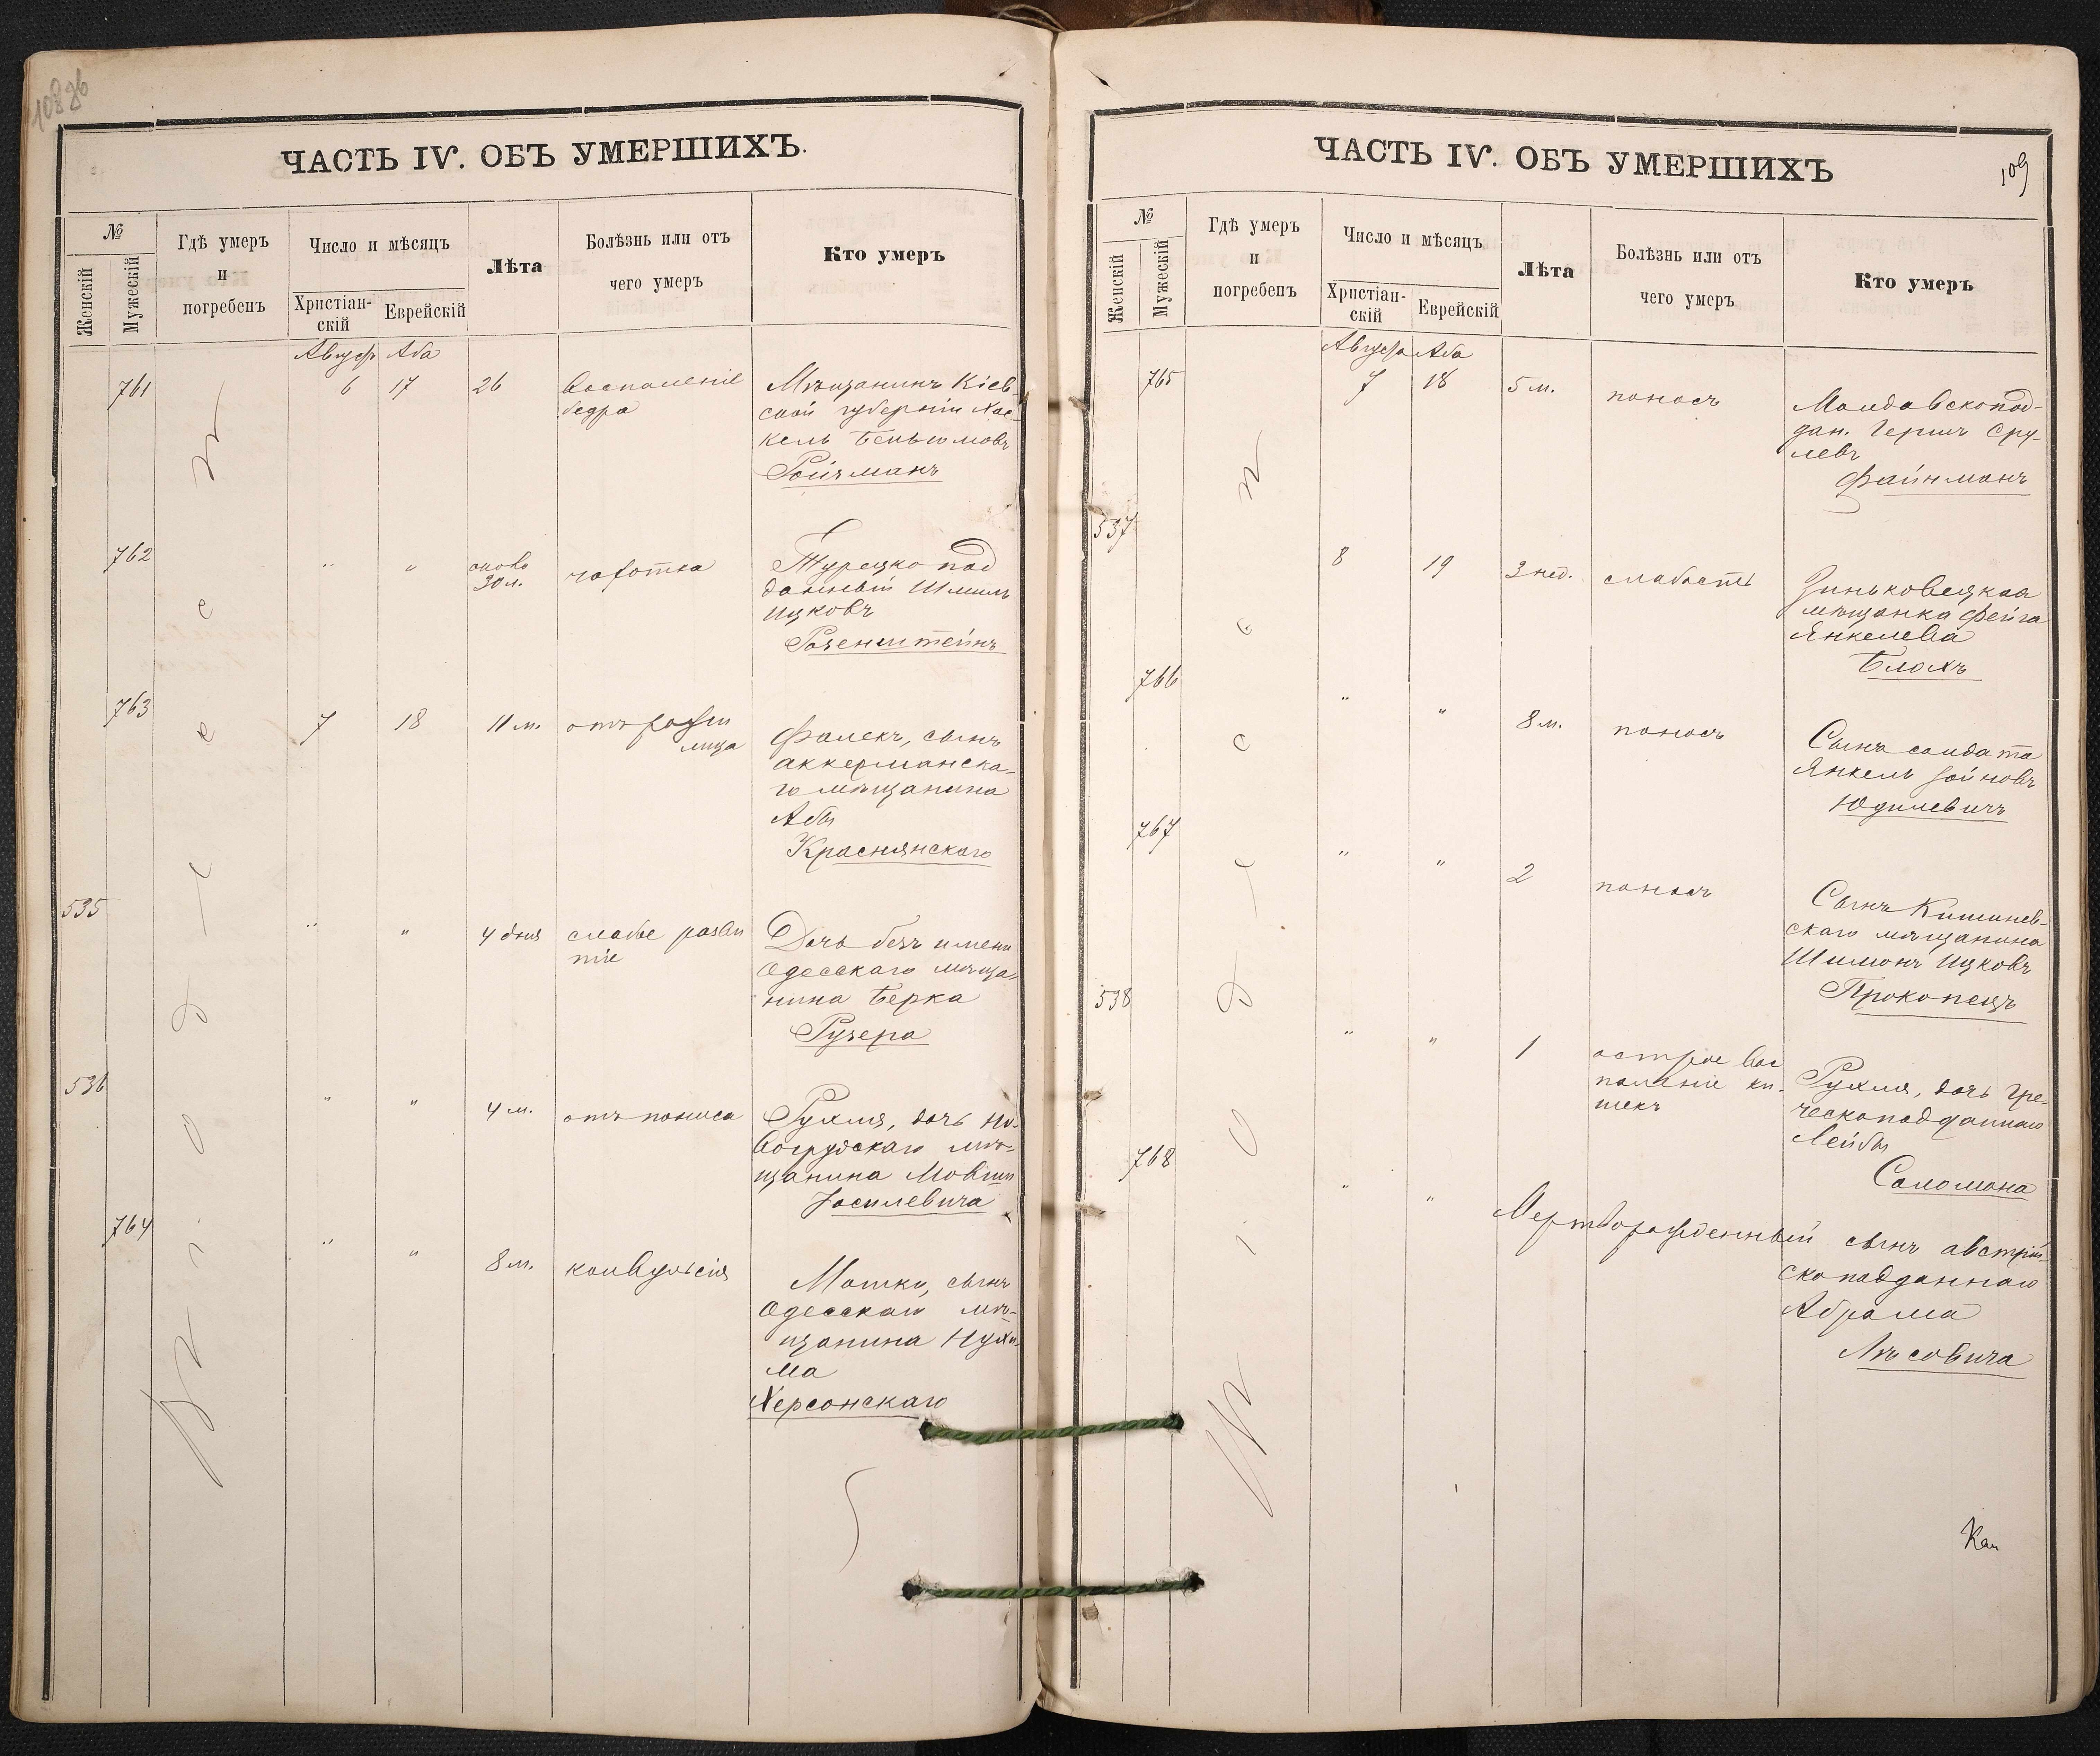 108 об
ЧАСТЬ IV. ОБЪ УМЕРШИХЪ.
№
Женскій
Мужескій
Гдѣ умеръ
и
погребенъ
Число и мѣсяцъ
Христіан-
скій
Еврейскій
Лѣта
Болѣзнь или отъ
чего умеръ
Кто умеръ
въ Одессѣ
Август Аба
761 6 17 26 Воспаленіе Мѣщанинъ Кіев-
бедра ской губерніи Хас-
кель Беньюмовъ
Ройзманъ
762 " " около чахотка Турецкопод
30 л. данный Шмиль
Ицковъ
Розенштейнъ
763 7 18 11 м. отъ рожи Фалекъ, сынъ
лица аккерманска-
го мѣщанина
Абы
Краснянскаго
535 " " 4 дня слабое разви Дочь безъ имени
тіе Одесскаго мѣща-
нина Берка
Рузера
536 " " 4 м. отъ поноса Рухля, дочь Но-
вогрудскаго мѣ-
щанина Мовши
Іосилевича
764 " " 8 м. конвульсія Мошко, сынъ
Одесскаго мѣ-
щанина Нухи-
ма
Херсонскаго
ЧАСТЬ IV. ОБЪ УМЕРШИХЪ
109
№
Женскій
Мужескій
Гдѣ умеръ
и
погребенъ
Число и мѣсяцъ
Христіан-
скій
Еврейскій
Лѣта
Болѣзнь или отъ
чего умеръ
Кто умеръ
въ Одессѣ
Августа Аба
765 7 18 5 м. поносъ Молдавскопод-
дан. Гершъ Сру-
левъ
Файнманъ
537 8 19 3 нед. слабость Зиньковецкая
мѣщанка Фейга
Янкелева
Блохъ
766 " " 8 м. поносъ Сынъ солдата
Янкель Зойновъ
Юдилевичъ
767 " " 2 поносъ Сынъ Кишинев-
скаго мѣщанина
Шимонъ Ицковъ
Прокопецъ
538 " " 1 острое вос Рухля, дочь гре-
паленіе ки- ческоподданнаго
шекъ Лейбы
Саломона
768 " " Мертворожденный сынъ австрій-
скоподданнаго
Абрама
Лѣсовича
Каз